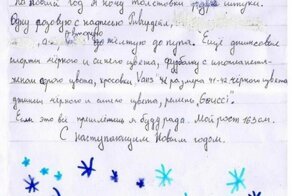 на Новый год я хочу толстовки две штуки.
Одну розовую с надписью
жёлтую до пупа. Ещё джинсовые
шорты чёрного и синего цвета, футболку с инопланет-
цвета, кросовки Vans размера 41-42 чёрного цвета
джинсы чёрного и синего цвета, ремень "Gucci".
Если это вы пришлёте я буду рада. Мой рост 163 см.
С наступающим Новым годом.